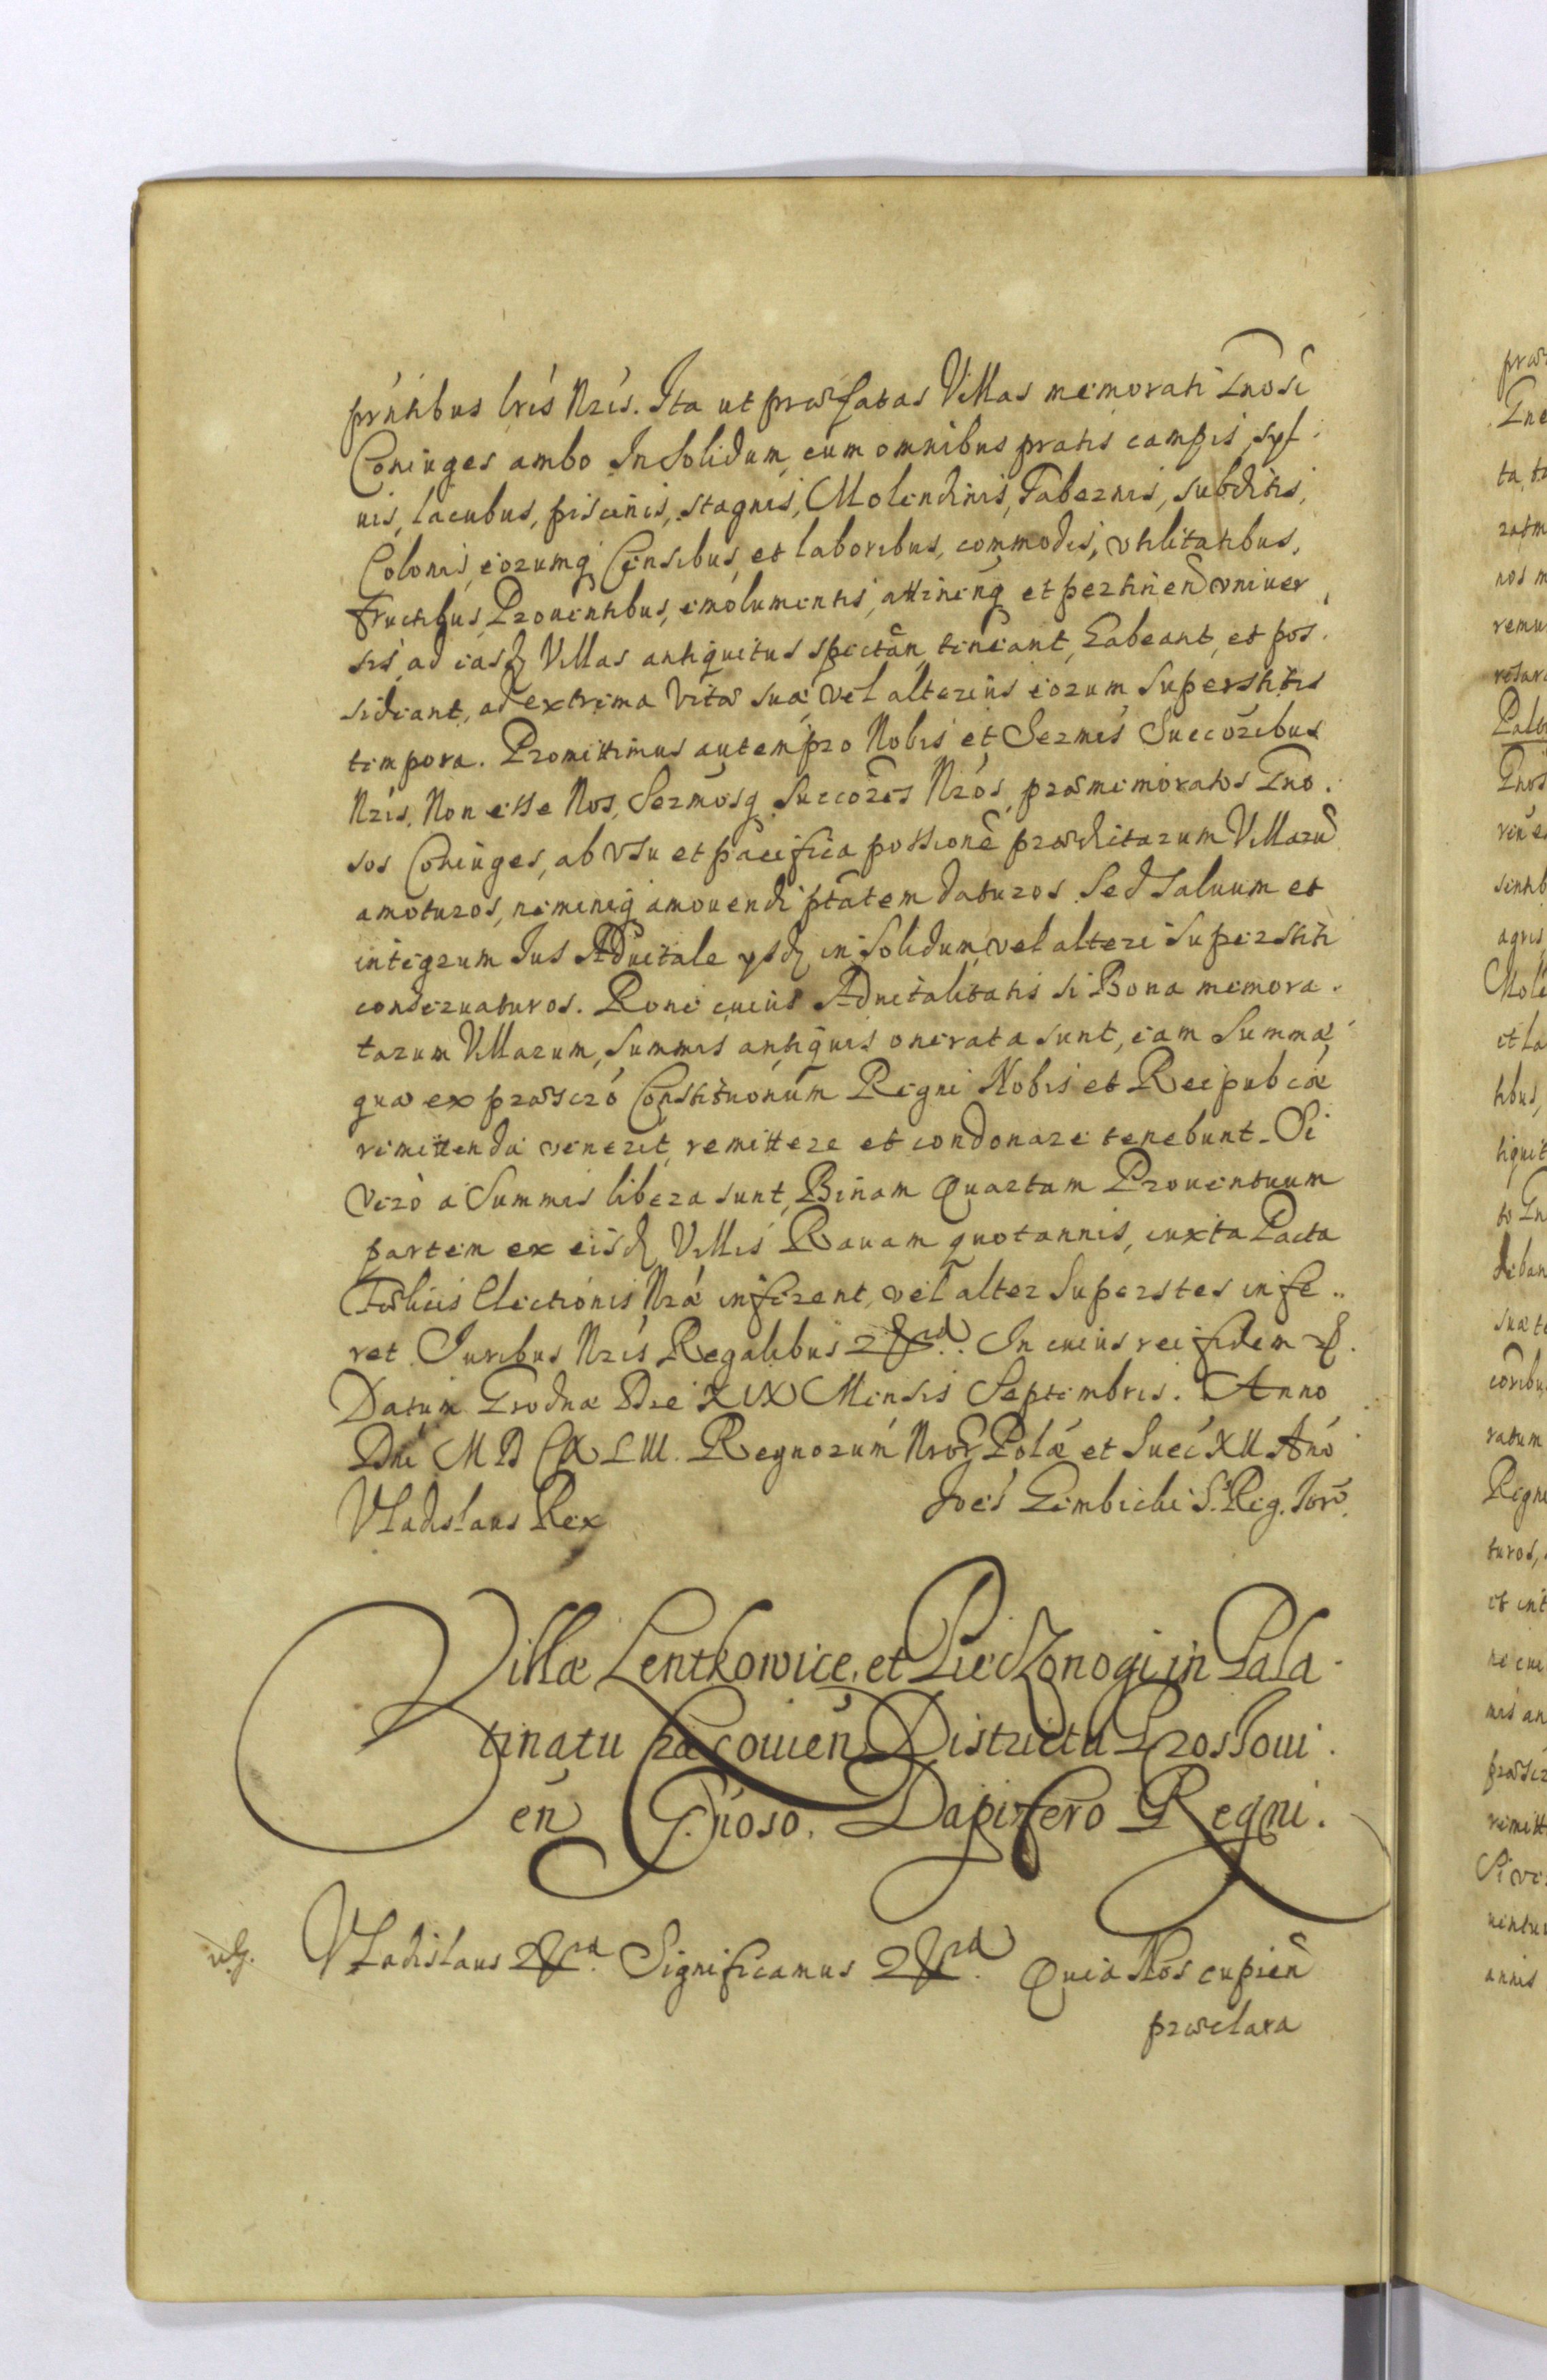 prńtibus lrís Nrís. Ita ut præfatas Villas memorati Gnosi
Coniuges ambo In solidum, cum omnibus pratis campis, syl-
uis, lacubus, piscinis, stagnis, Molendinis, Tabernis, subditis,
Colonis, eorumq Censibus, et laboribus, commodis, vtilitatibus,
fructibus, Prouentibus, emolumentis, attineñq et pertineñ vniuer-
sis, ad easd Villas antiquitus spectañ, teneant, habeant, et pos-
sideant, ad extrema vitæ suæ, vel alterius eorum, superstitis
tempora. Promittimus autem pro Nobis et Sermis Succoribus
Nrís, Non esse Nos, Sermosq Succores Nrós, præmemoratos Gno-
sos Coniuges, ab vsu et pacifica possione prædictarum Villarũ
amoturos, neminiq amouendi ptatem daturos. Sed saluum et
integrum Ius Aduitale ysd in solidum, vel alteri superstiti
conseruaturos. Rone cuius Aduitalitatis si Bona memora-
tarum Villarum, summis antiquis onerata sunt, eam summæ
quæ ex præscró Constitutionúm Regni Nobis et Reipubcæ
remittenda venerit, remittere et condonare tenebunt. Si
veró a summis libera sunt, Binam Quartam Prouentuum
partem ex eisd Villis Rauam quotannis, iuxta Pacta
Fælicis Electionis Nræ inferent, vel alter superstes infe-
ret. Iuribus Nrís Regalibus &rã. In cuius rei fidem &.
Datum Grodnæ Die XIX Mensis Septembris. Anno
Dni M D C XLIII. Regnorum Nror Polæ et Suec XII Anó
Vladislaus Rex Joes Gembicki S. Reg.
Villæ Lentkowice, et Piedzonogi in Pala-
tinatu Cracouień Districtu Prossoui-
eń Gnoso. Dapifero Regni.
Vladislaus &rã. Significamus &rã. Quia Nos cupień
præclara